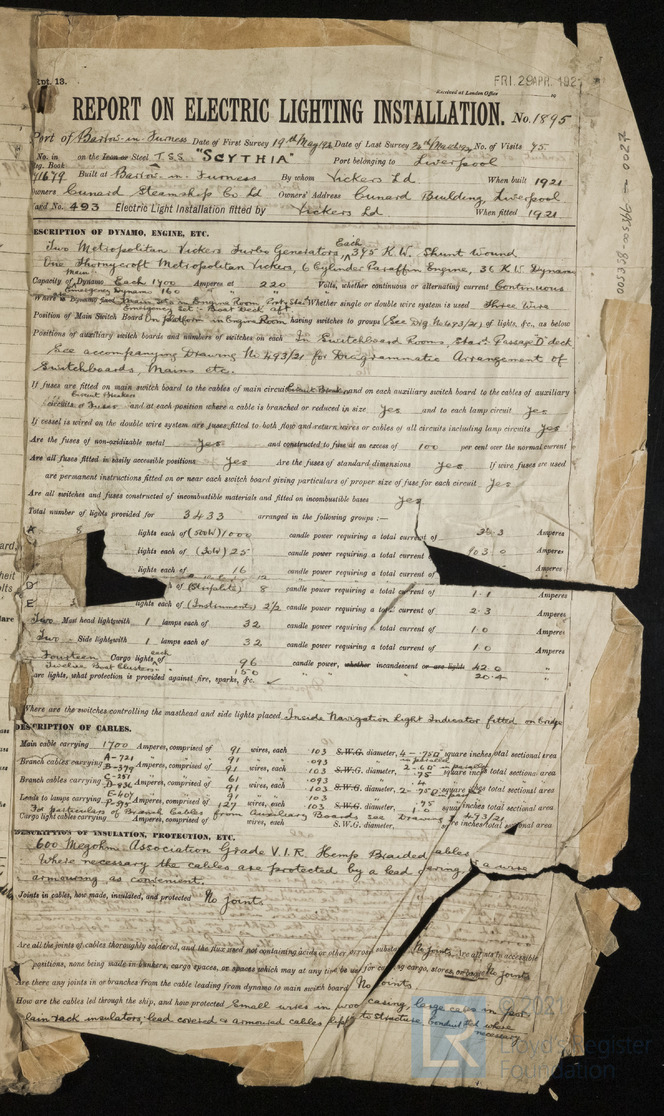 Rpt. 13.
FRI. 29 APR. 1921
Received at London Office
REPORT ON ELECTRIC LIGHTING INSTALLATION. No. 1895
Port of Barrow-in-Furness Date of First Survey 19th May Date of Last Survey No. of Visits 75
No. in on the Iron or Steel T.S.S. "SCYTHIA" Port belonging to Liverpool
Reg. Book
71679 Built at Barrow-in-Furness By whom Vickers Ld When built 1921
Owners Cunard Steamship Co Ld Owners' Address Cunard Building, Liverpool
Yard No. 493 Electric Light Installation fitted by Vickers Ld When fitted 1921
DESCRIPTION OF DYNAMO, ENGINE, ETC.
Two Metropolitan Vickers Turbo Generators, Each 375 K.W. Shunt Wound
One Thornycroft Metropolitan Vickers, 6 Cylinder Paraffin Engine, 35 K.W. Dynamo
Capacity of Main Dynamo Each 1700 Amperes at 220 Volts, whether continuous or alternating current Continuous
Emergency Dynamo 160 " " "
Where is Dynamo fixed Main Sets in Engine Room, Whether single or double wire system is used Three Wire
Emergency Set - Boat Deck aft
Position of Main Switch Board On platform in Engine Room, having switches to groups (See Drg. No. 493/21) of lights, &c., as below
Positions of auxiliary switch boards and numbers of switches on each In Switchboard Rooms, Star. Passage D deck
See accompanying Drawing No. 493/21 for Diagrammatic Arrangement of
Switchboards, Mains etc.
If fuses are fitted on main switch board to the cables of main circuit Circuit Breakers and on each auxiliary switch board to the cables of auxiliary
circuits Circuit Breakers or Fuses and at each position where a cable is branched or reduced in size Yes and to each lamp circuit Yes
If vessel is wired on the double wire system are fuses fitted to both flow and return wires or cables of all circuits including lamp circuits Yes
Are the fuses of non-oxidizable metal Yes and constructed to fuse at an excess of 100 per cent over the normal current
Are all fuses fitted in easily accessible positions Yes Are the fuses of standard dimensions Yes If wire fuses are used
are permanent instructions fitted on or near each switch board giving particulars of proper size of fuse for each circuit Yes
Are all switches and fuses constructed of incombustible materials and fitted on incombustible bases Yes
Total number of lights provided for 3433 arranged in the following groups :—
A 8 lights each of (500W) 1000 candle power requiring a total current of Amperes
lights each of (30W) 25 candle power requiring a total current of 903.0 Amperes
lights each of 16 candle power requiring a total current of Amperes
D lights each of 8 candle power requiring a total current of 1.1 Amperes
E lights each of (Instruments) 2½ candle power requiring a total current of 2.3 Amperes
Two Mast head light with 1 lamps each of 32 candle power requiring a total current of 1.0 Amperes
Two Side light with 1 lamps each of 32 candle power requiring a total current of 1.0 Amperes
Fourteen Cargo lights each of 96 candle power, whether incandescent or arc lights 42.0 "
Twelve Boat Clusters " 150 " " 20.4 "
arc lights, what protection is provided against fire, sparks, &c.
Where are the switches controlling the masthead and side lights placed Inside Navigation Light Indicator fitted on bridge
DESCRIPTION OF CABLES.
Main cable carrying 1700 Amperes, comprised of 91 wires, each .103 S.W.G. diameter, 4 - .75□" in parallel square inches total sectional area
A-721 91 .093
Branch cables carrying B-379 Amperes, comprised of 91 wires, each .103 S.W.G. diameter, .75 square inches total sectional area
C-251 61 .093 .4
Branch cables carrying D-836 Amperes, comprised of 91 wires, each .103 S.W.G. diameter, 2 - .75□" square inches total sectional area
E-407 91 .103 .75
Leads to lamps carrying Amperes, comprised of 127 wires, each .103 S.W.G. diameter, 1.0 square inches total sectional area
For particulars of Branch Cables from Auxiliary Boards see Drawing 493/21
Cargo light cables carrying Amperes, comprised of wires, each S.W.G. diameter, square inches total sectional area
DESCRIPTION OF INSULATION, PROTECTION, ETC.
600 Megohm Association Grade V.I.R. Hemp Braided cables
Where necessary the cables are protected by a lead covering & a wire
armouring as convenient.
Joints in cables, how made, insulated, and protected No joints
Are all the joints of cables thoroughly soldered, and the flux used not containing acids or other corrosive substances No joints. Are all joints in accessible
positions, none being made in bunkers, cargo spaces, or spaces which may at any time be used for carrying cargo, stores, or baggage No joints
Are there any joints in or branches from the cable leading from dynamo to main switch board No joints
How are the cables led through the ship, and how protected Small wires in wood casing, large cables in porce-
lain rack insulators, lead covered & armoured cables clipped to structure, conduit used where
necessary
003580-003566-0027
© 2021
Lloyd's Register
Foundation